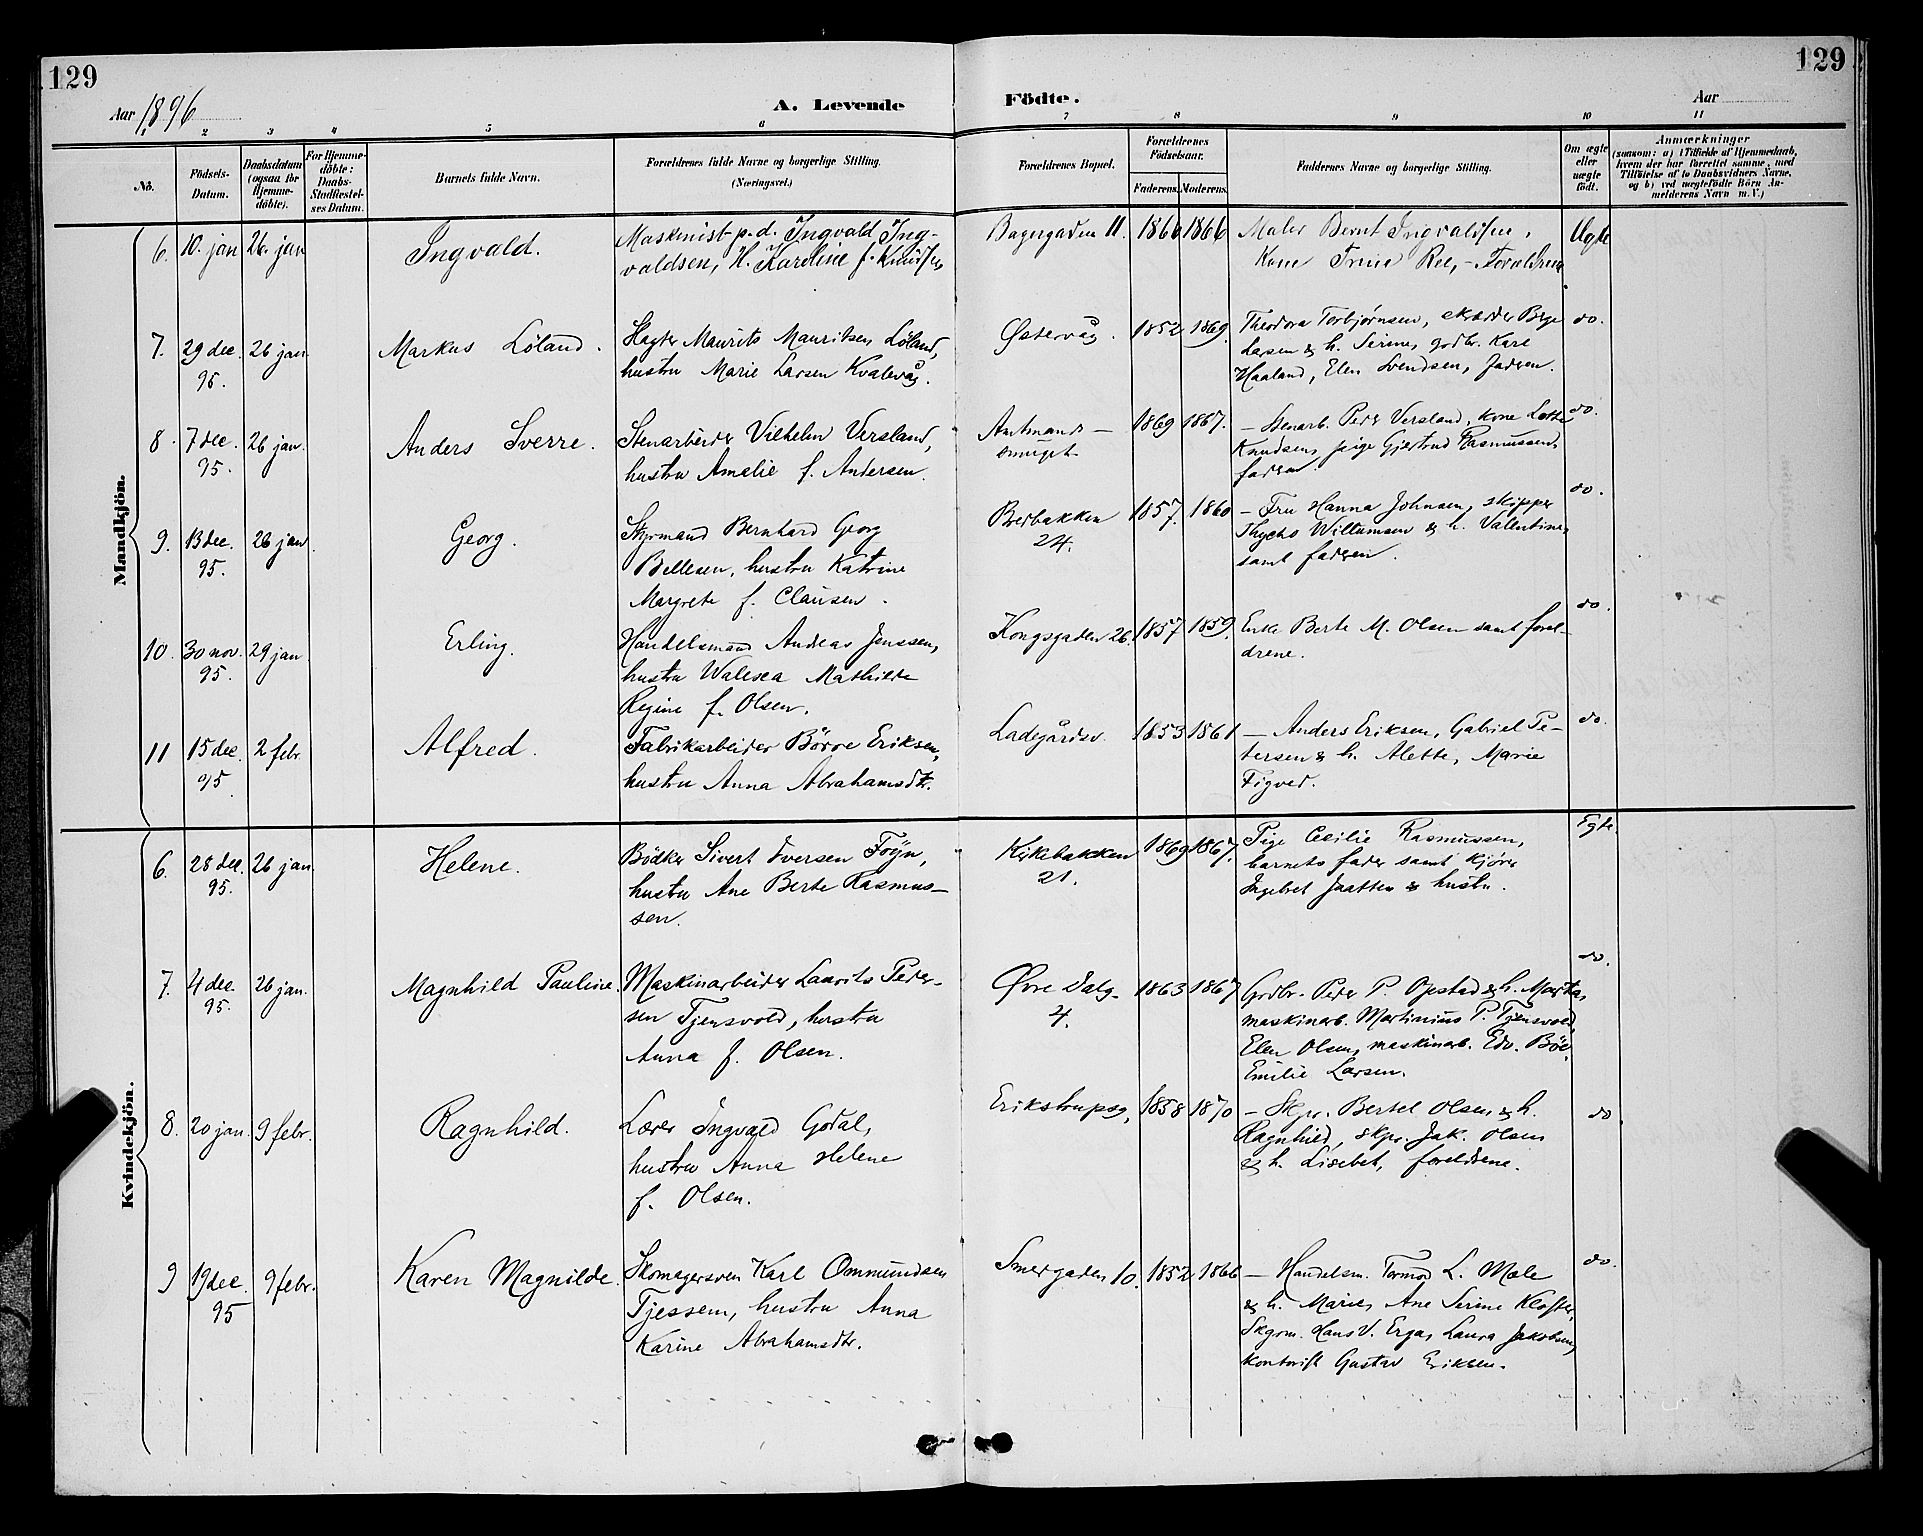 129
129
Aar 1896
A. Levende Födte.
Aar
1 2 3 4 5 6 7 8 9 10 11
No.
Födsels-Datum.
Daabsdatum (ogsaa for Hjemme-döbte).
For Hjemme-döbte: Daabs-Stadfæstel-ses Datum.
Barnets fulde Navn.
Forældrenes fulde Navne og borgerlige Stilling.
(Næringsvei.)
Forældrenes Bopæl.
Forældrenes Födselsaar.
Faderens. Moderens.
Faddernes Navne og borgerlige Stilling.
Om ægte eller uægte födt.
Anmærkninger
(saasom: a) i Tilfælde af Hjemmedaab, hvem der har forrettet samme, med Tilföielse af to Daabsvidners Navne, og b) ved uægtefödte Börn Anmelderens Navn m. V.)
Mandkjön.
6. 10. jan 26. jan Ingvald. Maskinist p.d. Ingvald Ing-
valdsen, H. Karoline f. Knudsen
Bagergaden 11. 1866 1866 Maler Bernt Ingvaldsen,
Kone Trine Ree, - Forældrene
Ægte
7. 29 dec. 95. 26 jan. Markus Löland. Slagter Maurits Mauritsen Löland,
hustru Marie Larsen Kvalevåg.
Østervåg. 1852 1869. Theodora Torbjørnsen, skrædder Børge
Larsen & h. Serine, grdbr. Karl
Haaland, Elen Svendsen, Faderen.
do.
8. 7 dec. 95. 26 jan. Anders Sverre. Stenarbeider Vilhelm Versland,
hustru Amalie f. Andersen.
Amtmand-
smuget. 1869 1867. — Stenarb. Peder Versland, kone Lotte
Knudsen, pige Gjertrud Rasmussen,
faderen.
do.
9. 13 dec. 95. 26 jan. Georg. Styrmand Bernhard Georg
Bellesen, hustru Katrine
Margrete f. Clausen.
Bredbakken
24. 1857. 1860 — Fru Hanna Johnsen, skipper
Thycho Willumsen & h. Valentine,
samt faderen.
do.
10. 30 nov. 95. 29 jan Erling. Handelsmand Andreas Janssen,
hustru Walesca Mathilde
Regine f. Olsen.
Kongsgaden 26. 1857 1859. Enke Berte M. Olsen samt forel-
drene.
do.
11 15 dec. 95. 2 febr. Alfred. Fabrikarbeider Börre Eriksen,
hustru Anna Abrahamsdtr.
Ladegårdsv. 1853 1861 — Anders Eriksen, Gabriel Pe-
tersen & h. Alette, Marie
Figved.
do.
Kvindekjön.
6. 28 dec. 95. 26 jan. Helene. Bödker Sivert Iversen Föyn,
hustru Ane Berte Rasmus-
sen.
Kirkebakken
21. 1869 1867. Pige Cecilie Rasmussen,
barnets fader samt kjörer
Ingebret Jaatten & hustru.
Egte.
7. 4 dec. 95. 26 jan. Magnhild Pauline. Maskinarbeider Laurits Peder-
sen Tjensvold, hustru
Anna f. Olsen.
Øvre Dalg.
4. 1863 1867 Grdbr. Peder P. Opstad & h. Marta,
maskinarb. Martinius P. Tjensvold,
Elen Olsen, maskinarb. Edv. Böe,
Emilie Larsen.
do.
8. 20 jan. 9 febr. Ragnhild. Lærer Ingvald Godal,
hustru Anna Helene
f. Olsen.
Erikstrupsg. 1858 1870 — Skpr. Bertel Olsen & h.
Ragnhild, skpr. Jak. Olsen
& h. Lisebet, foreldrene.
do
9 19 dec 95 9 febr. Karen Magnilde. Skomagersven Karl Ommundsen
Tjessem, hustru Anna
Karine Abrahamsdtr.
Smedgaden 10. 1852 1866 — Handelsm. Tormod L. Mæle
& h. Marie, Ane Serine Kloster,
Skgom. Hans V. Erga, Laura Jakobsen,
kontorist Gustav Eriksen.
do.